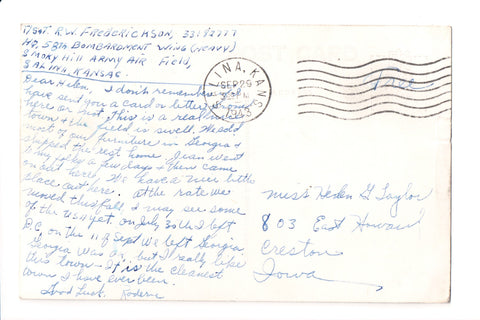 T/SGT. R.W. FREDERICKSON, 33192777
HQ. 58TH BOMBARDMENT WING (HEAVY)
SMOKY HILL ARMY AIR FIELD,
SALINA, KANSAS.
Dear Helen. I don't remember if I
have sent you a card or letter from
here or not, this is a real
town & the field is swell. We sold
most of our furniture in Georgia &
shipped the rest home. Jean went
to my folks a few days & then came
on out here. We have a nice little
place out here. At the rate we
moved this fall I may see some
of the USA yet. on July 30th I left
D.C. on the 11 of Sept we left Georgia.
Georgia was OK, but I really like
this town. It is the cleanest
town I have ever been.
Good Luck. Roderic
SALINA, KANS.
SEP 29
1943
Free
POST CARD
Miss Helen G Taylor
803 East Howard
Creston
Iowa